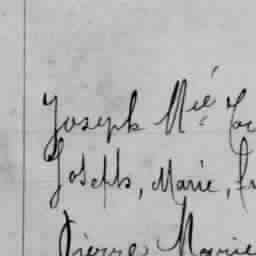 Joseph Mie
Joseph, Marie,
Pierre Marie